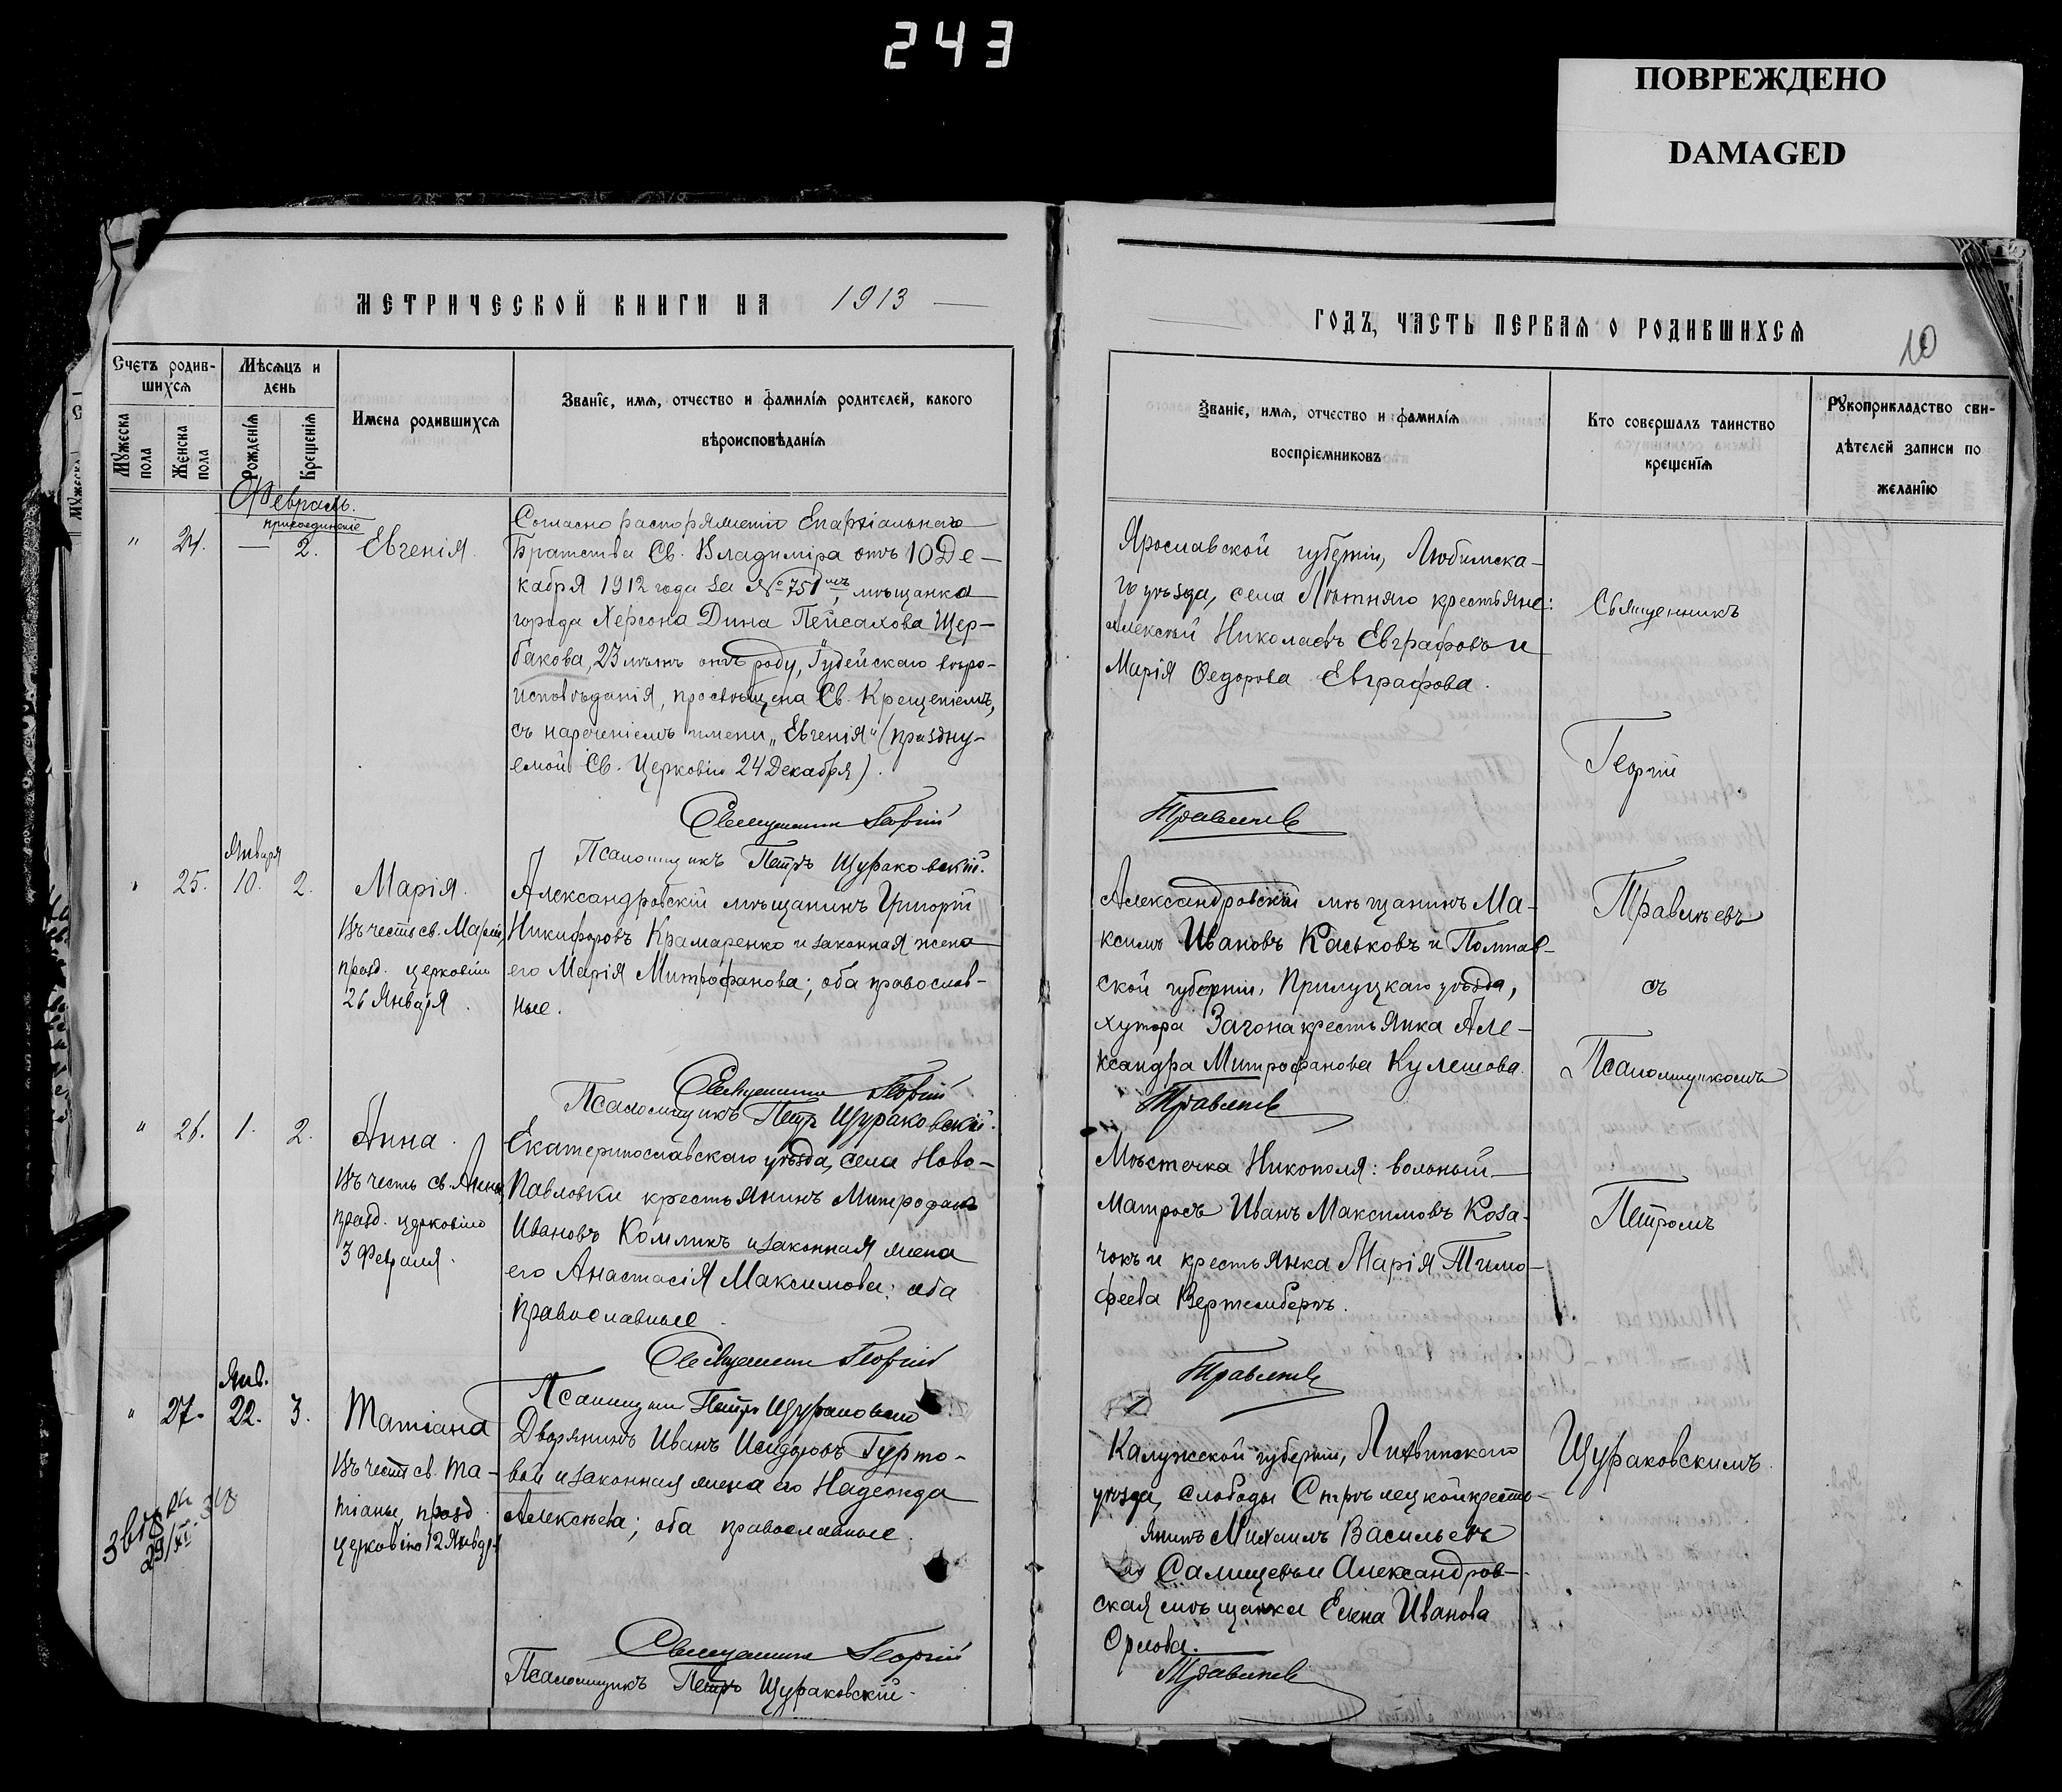 243
ПОВРЕЖДЕНО
DAMAGED
МЕТРИЧЕСКОЙ КНИГИ НА 1913
Счетъ родив-
шихся
Мѣсяцъ и
день
Мужеска
пола
Женска
пола
Рожденія
Крещенія
Имена родившихся
Званіе, имя, отчество и фамилія родителей, какого
вѣроисповѣданія
Февраль.
присоединеніе
" 24. — 2. Евгенія.
Согласно распоряженію Епархіальнаго
Братства Св. Владиміра отъ 10 Де-
кабря 1912 года за № 751мъ, мѣщанка
города Херсона Дина Пейсахова Щер-
бакова, 23 лѣтъ отъ роду, Іудейскаго вѣро-
исповѣданія, просвѣщена Св. Крещеніемъ,
съ нареченіемъ имени „Евгенія" (праздну-
емой Св. Церковію 24 Декабря).
Священникъ Георгій
Псаломщикъ Петръ Щураковскій.
Января
" 25. 10. 2. Марія.
Въ честь св. Маріи,
празд. церковію
26 Января.
Александровскій мѣщанинъ Григорій
Никифоровъ Крамаренко и законная жена
его Марія Митрофанова; оба православ-
ные.
Священникъ Георгій
Псаломщикъ Петръ Щураковскій.
" 26. 1. 2. Анна.
Въ честь св. Анны,
празд. церковію
3 Февраля.
Екатеринославскаго уѣзда, села Ново-
Павловки крестьянинъ Митрофанъ
Ивановъ Комликъ и законная жена
его Анастасія Максимова; оба
православные.
Священникъ Георгій
Псаломщикъ Петръ Щураковскій
Янв.
" 27. 22. 3. Татіана
Въ честь св. Та-
тіаны, празд.
церковію 12 Января
29/XI
Дворянинъ Иванъ Исидоровъ Гурто-
вой и законная жена его Надежда
Алексѣева; оба православные.
Священникъ Георгій
Псаломщикъ Петръ Щураковскій.
ГОДЪ, ЧАСТЬ ПЕРВАЯ О РОДИВШИХСЯ
10
Званіе, имя, отчество и фамилія
воспріемниковъ
Кто совершалъ таинство
крещенія
Рукоприкладство сви-
дѣтелей записи по
желанію
Ярославской губерніи, Любимска-
го уѣзда, села Лѣтняго крестьяне:
Алексѣй Николаевъ Евграфовъ и
Марія Ѳедорова Евграфова.
Травлѣевъ
Александровскій мѣщанинъ Ма-
ксимъ Ивановъ Каськовъ и Полтав-
ской губерніи, Прилуцкаго уѣзда,
хутора Загона крестьянка Але-
ксандра Митрофанова Кулешова.
Травлѣевъ
Мѣстечка Никополя: вольный
матросъ Иванъ Максимовъ Коза-
чокъ и крестьянка Марія Тимо-
феева Вертембергъ.
Травлѣевъ
Калужской губерніи, Лихвинскаго
уѣзда, слободы Стрѣлецкой кресть-
янинъ Михаилъ Васильевъ
Салищевъ и Александров-
ская мѣщанка Елена Иванова
Орлова.
Травлѣевъ
Священникъ
Георгій
Травлѣевъ
съ
Псаломщикомъ
Петромъ
Щураковскимъ.